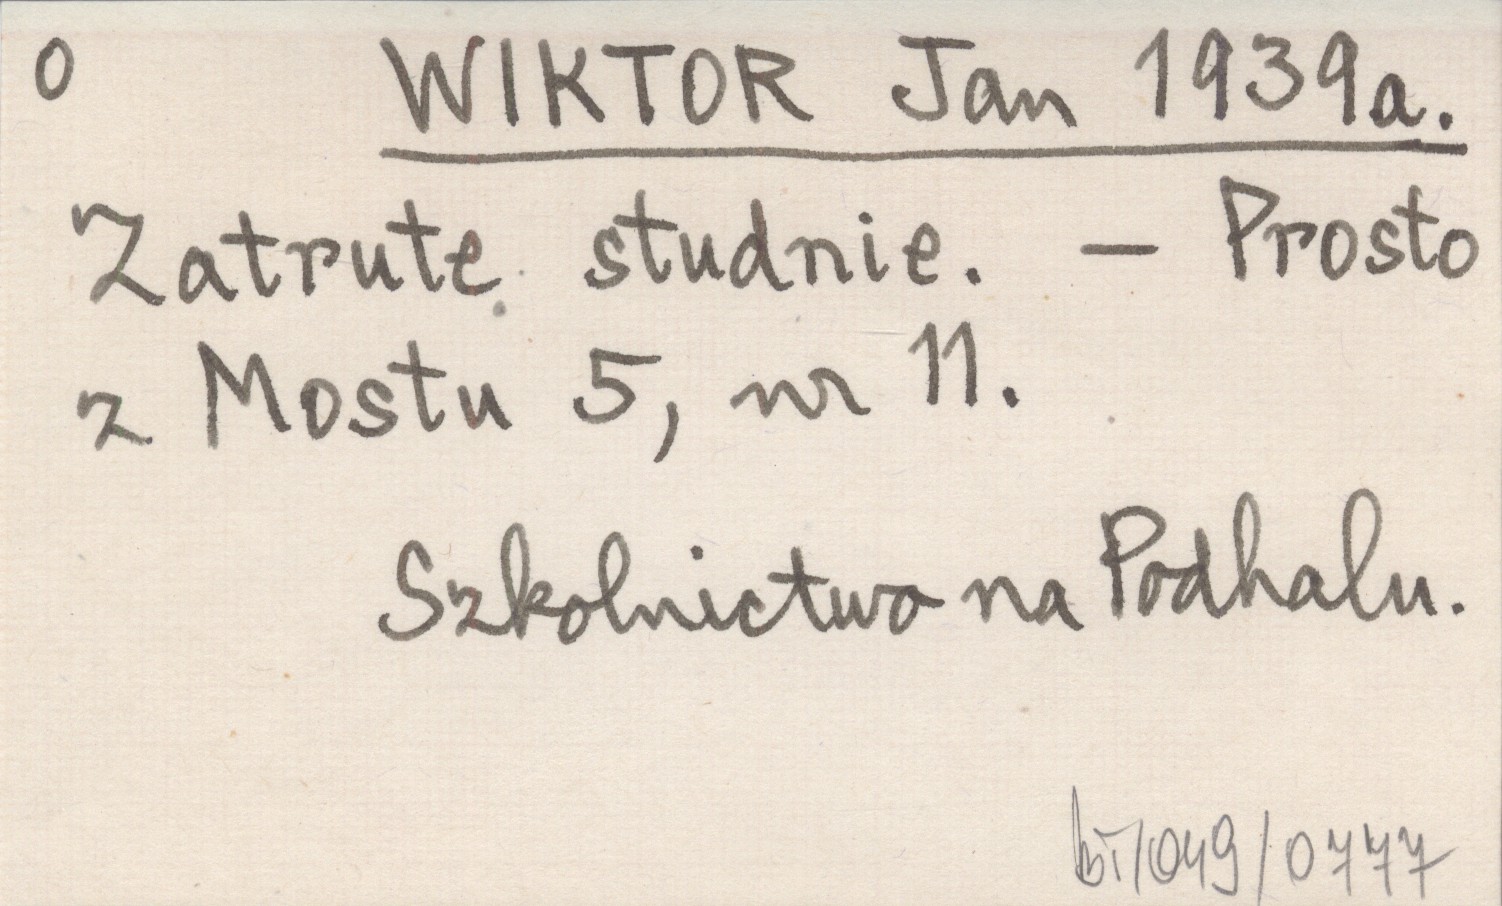 0 WIKTOR Jan 1939a.
Zatrute studnie. — Prosto
z Mostu 5, nr 11.
Szkolnictwo na Podhalu.
bi/049/0777